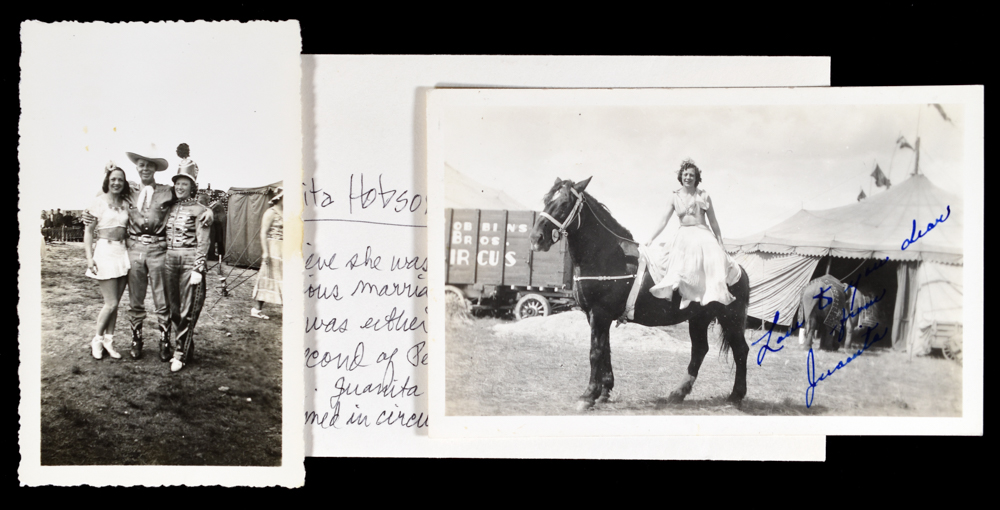 ita Hobso
eve she was
ous marria
was either
cond of Pe
Juanita
med in circu
OBBINS
BROS.
IRCUS
Love to you dear
Juanita